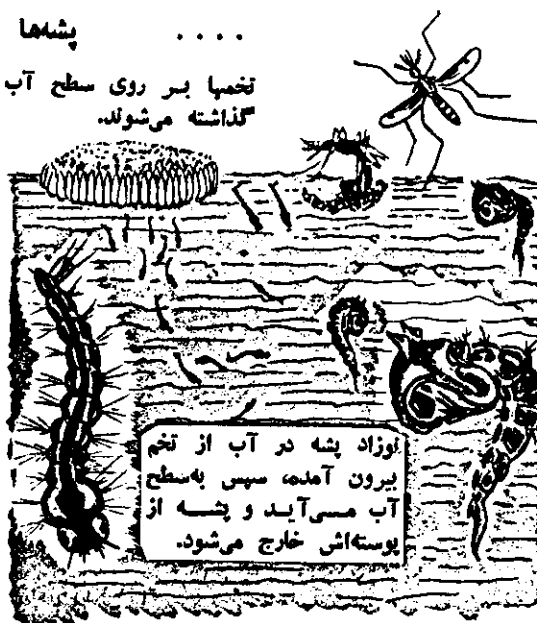 .... پشه‌ها
تخمها بر روی سطح آب
گذاشته می‌شوند.
نوزاد پشه در آب از تخم
بیرون آمده، سپس به‌سطح
آب مــی‌آیـد و پشـــه از
پوسته‌اش خارج می‌شود.